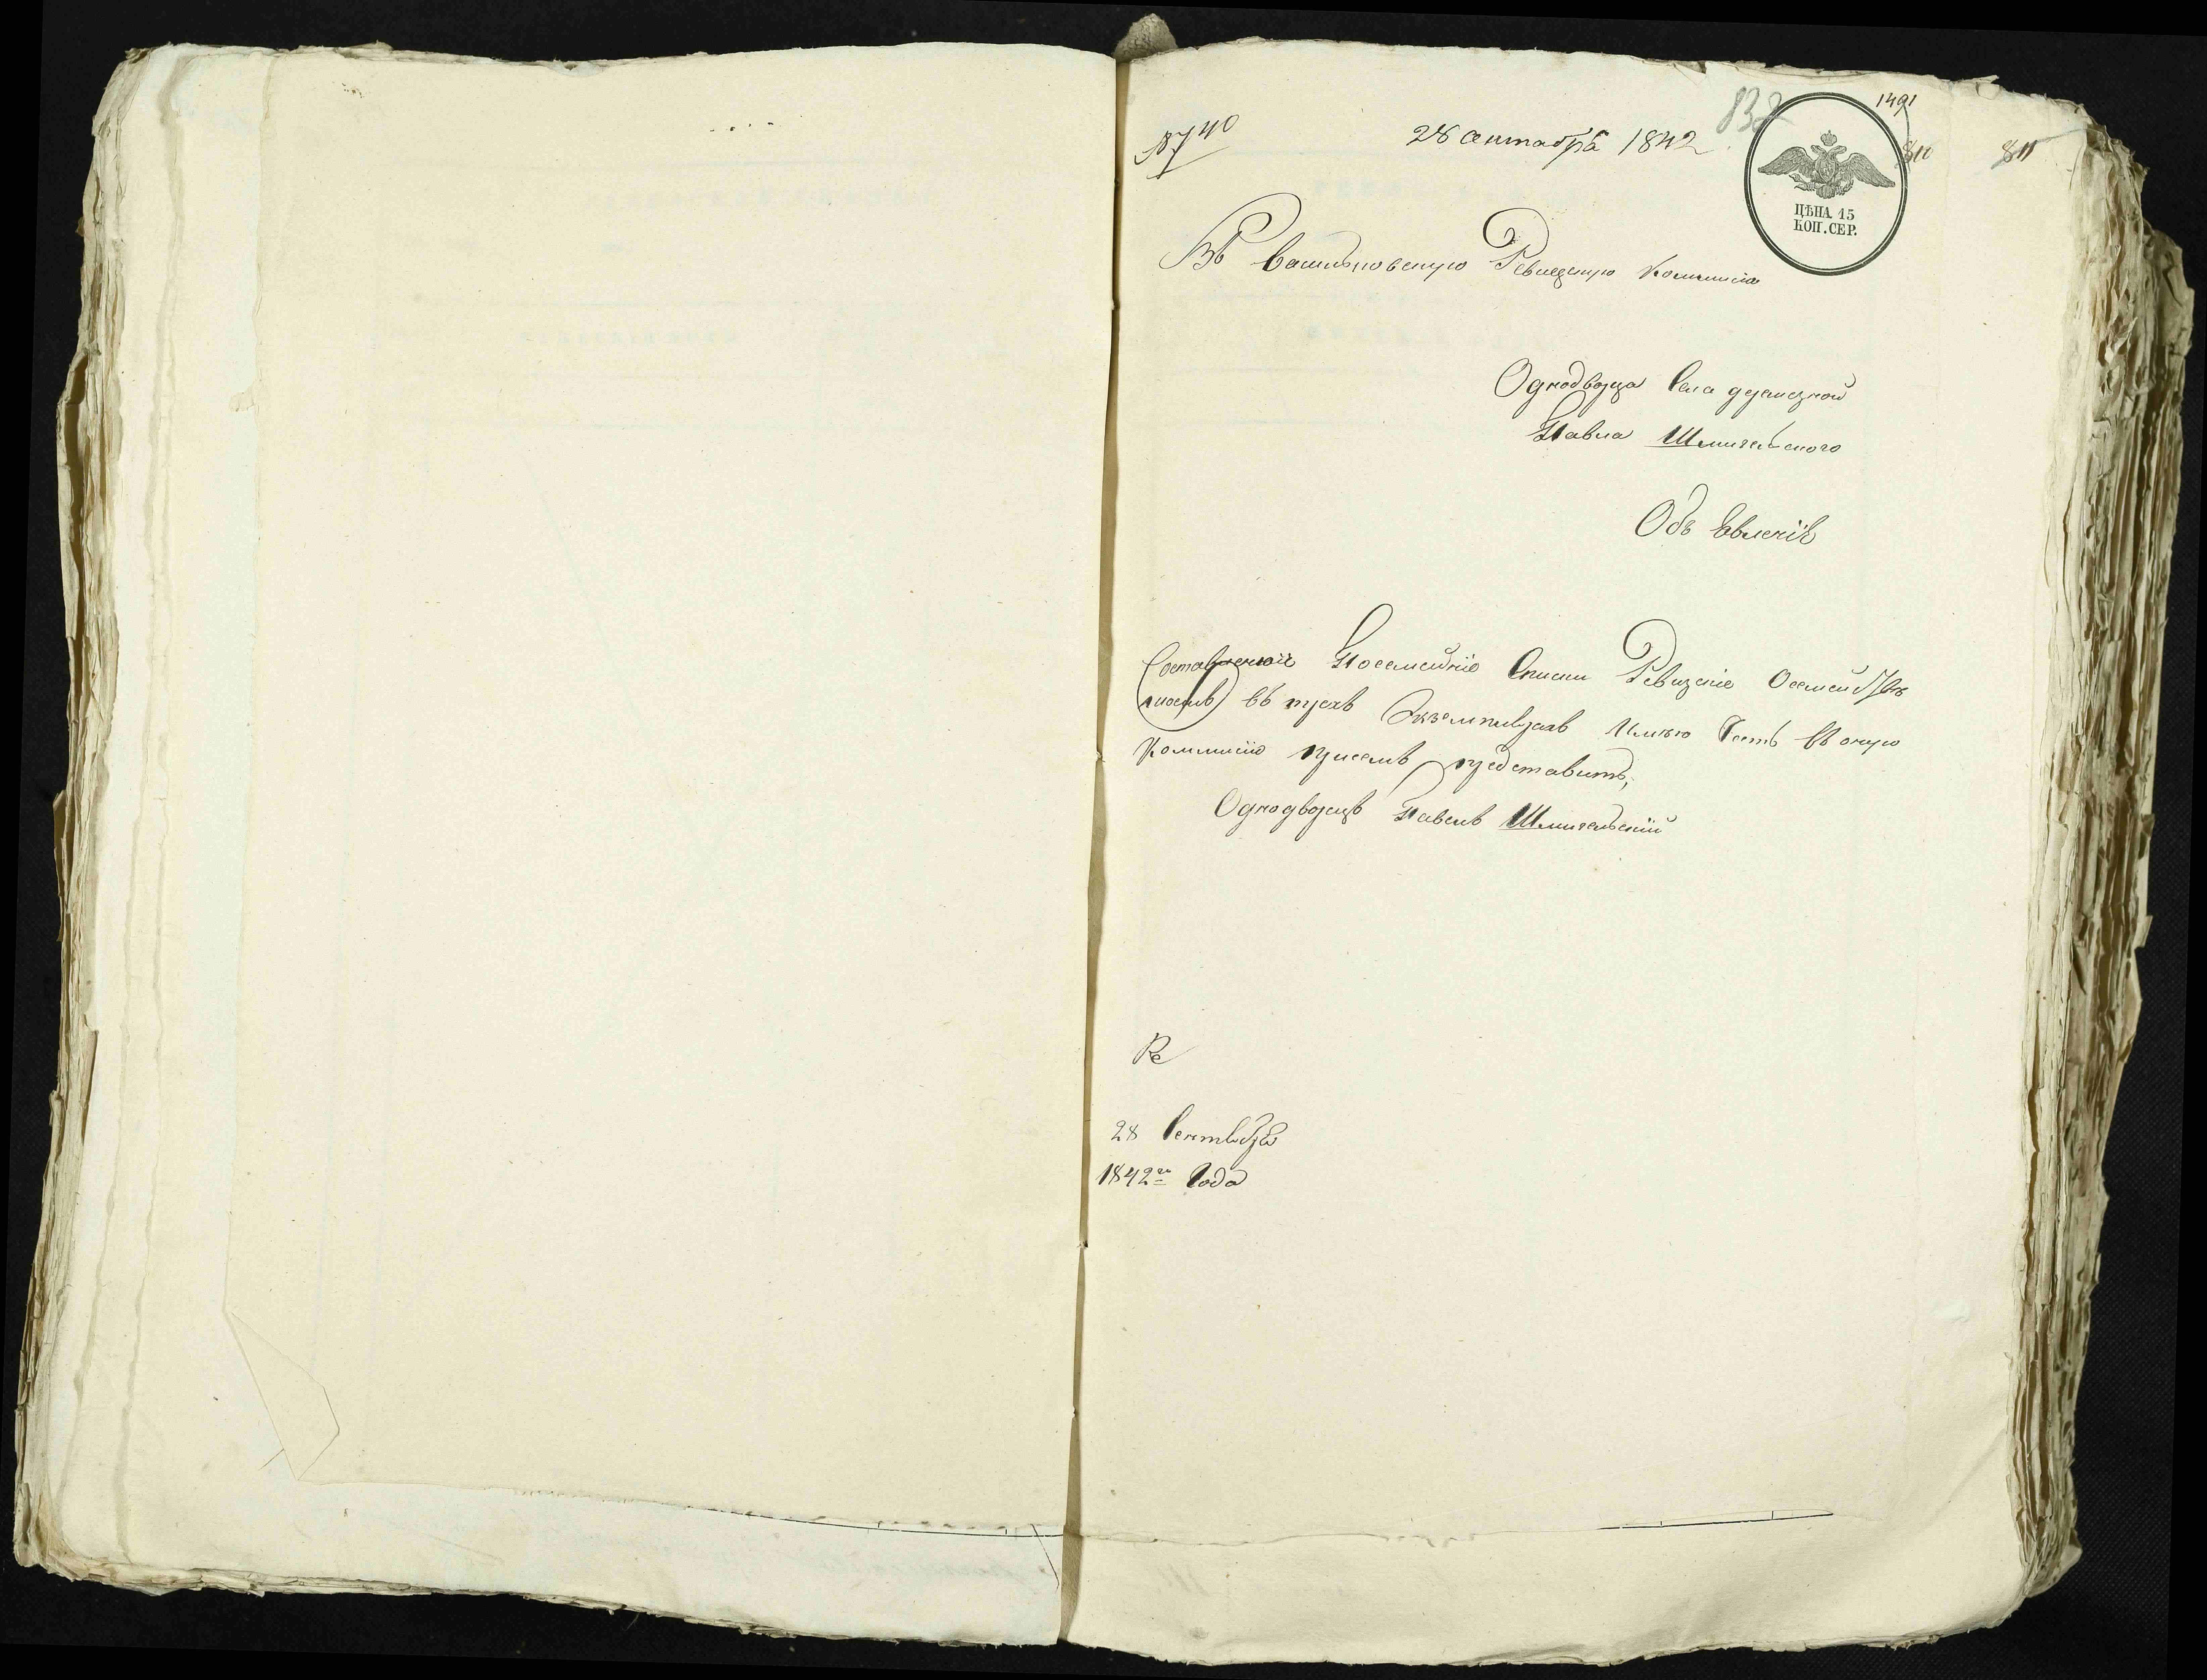 28 сентября 1842
832
1491
810
811
ЦѢНА 15
КОП. СЕР.
Въ Васильковскую Ревизскую Коммисію
Однодворца Села
Павла Шмигельского
Объ Явленіе
Составленіе Посемейніе Списки Ревизскіе о семействѣ
моемъ въ трехъ Экземплярахъ Имѣю Честь въ оную
Коммисію при семъ представить,
Однодворецъ Павелъ Шмигельскій
28 Сентября
1842го Года